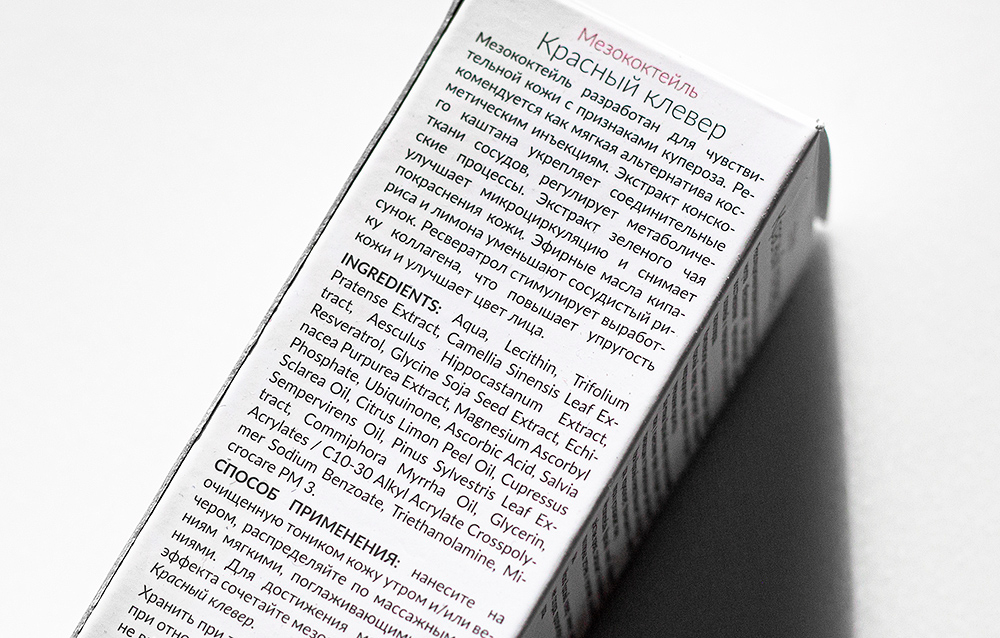 Мезококтейль
Красный клевер
Мезококтейль разработан для чувстви-
тельной кожи с признаками купероза. Ре-
комендуется как мягкая альтернатива кос-
метическим инъекциям. Экстракт конско-
го каштана укрепляет соединительные
ткани сосудов, регулирует метаболиче-
ские процессы. Экстракт зеленого чая
улучшает микроциркуляцию и снимает
покраснения кожи. Эфирные масла кипа-
риса и лимона уменьшают сосудистый ри-
сунок. Ресвератрол стимулирует выработ-
ку коллагена, что повышает упругость
кожи и улучшает цвет лица.
INGREDIENTS: Aqua, Lecithin, Trifolium
Pratense Extract, Camellia Sinensis Leaf Ex-
tract, Aesculus Hippocastanum Extract,
Resveratrol, Glycine Soja Seed Extract, Echi-
nacea Purpurea Extract, Magnesium Ascorbyl
Phosphate, Ubiquinone, Ascorbic Acid, Salvia
Sclarea Oil, Citrus Limon Peel Oil, Cupressus
Sempervirens Oil, Pinus Sylvestris Leaf Ex-
tract, Commiphora Myrrha Oil, Glycerin,
Acrylates / C10-30 Alkyl Acrylate Crosspoly-
mer Sodium Benzoate, Triethanolamine, Mi-
crocare PM 3.
СПОСОБ ПРИМЕНЕНИЯ: нанесите на
очищенную тоником кожу утром и/или ве-
чером, распределяйте по массажным
ниям мягкими, поглаживающими
ниями. Для достижения
эффекта сочетайте
Красный клевер.
Хранить при
при
не